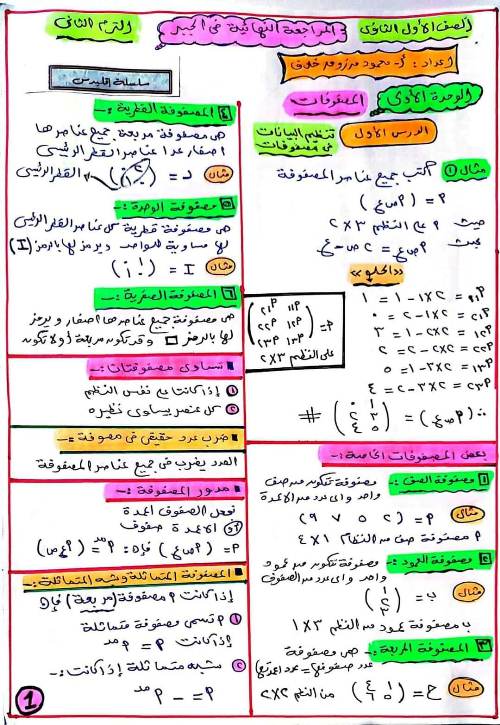 الصف الأول الثانوى
المراجعة النهائية فى الجبر
الترم الثانى
إعداد : أ- محمود مرزوق خليل
الوحدة الأولى
المصفوفات
الدرس الأول
تنظيم البيانات
فى مصفوفات
مثال ① اكتب جميع عناصر المصفوفة
P = (P ص ع)
حيث P على النظم ٣×٢
بحيث P ص ع = ٢ ص - ع
«الحلو»
P١١ = ٢×١ - ١ = ١
P١٢ = ٢×١ - ٢ = ٠
P٢١ = ٢×٢ - ١ = ٣
P٢٢ = ٢×٢ - ٢ = ٢
P٣١ = ٢×٣ - ١ = ٥
P٣٢ = ٢×٣ - ٢ = ٤
على النظم ٣×٢
بعض المصفوفات الخاصة :-
١ مصفوفة الصف :- مصفوفة تتكون من صف
واحد وأى عدد من الأعمدة
مثال P = (٢ ٥ ٧ ٩)
P مصفوفة صف من النظم ١×٤
٢ مصفوفة العمود :- مصفوفة تتكون من عمود
واحد وأى عدد من الصفوف
مثال
ب مصفوفة عمود من النظم ٣×١
٣ المصفوفة المربعة :- هى مصفوفة
عدد صفوفها = عدد أعمدتها
مثال
من النظم ٢×٢
سلسلة إقليدس
٤ المصفوفة القطرية :-
هى مصفوفة مربعة جميع عناصرها
أصفار عدا عناصر القطر الرئيسى
مثال
القطر الرئيسى
٥ مصفوفة الوحدة :-
هى مصفوفة قطرية كل عناصر القطر الرئيسى
لها مساوية للواحد ويرمز لها بالرمز (I)
مثال
٦ المصفوفة الصفرية :-
هى مصفوفة جميع عناصرها أصفار ويرمز
لها بالرمز □ وقد تكون مربعة أو لا تكون
تساوى مصفوفتان :-
① إذا كانتا على نفس النظم
② كل عنصر يساوى نظيره
ضرب عدد حقيقى فى مصفوفة :-
العدد يضرب فى جميع عناصر المصفوفة
مدور المصفوفة :-
نجعل الصفوف أعمدة
أو الأعمدة صفوف
P = (P ص ع) فإن : P مد = (P ع ص)
المصفوفة المتماثلة وشبه المتماثلة :-
إذا كانت P مصفوفة (مربعة) فإن
① P تسمى مصفوفة متماثلة
إذا كانت P = P مد
② شبه متماثلة إذا كانت :-
P = - P مد
1